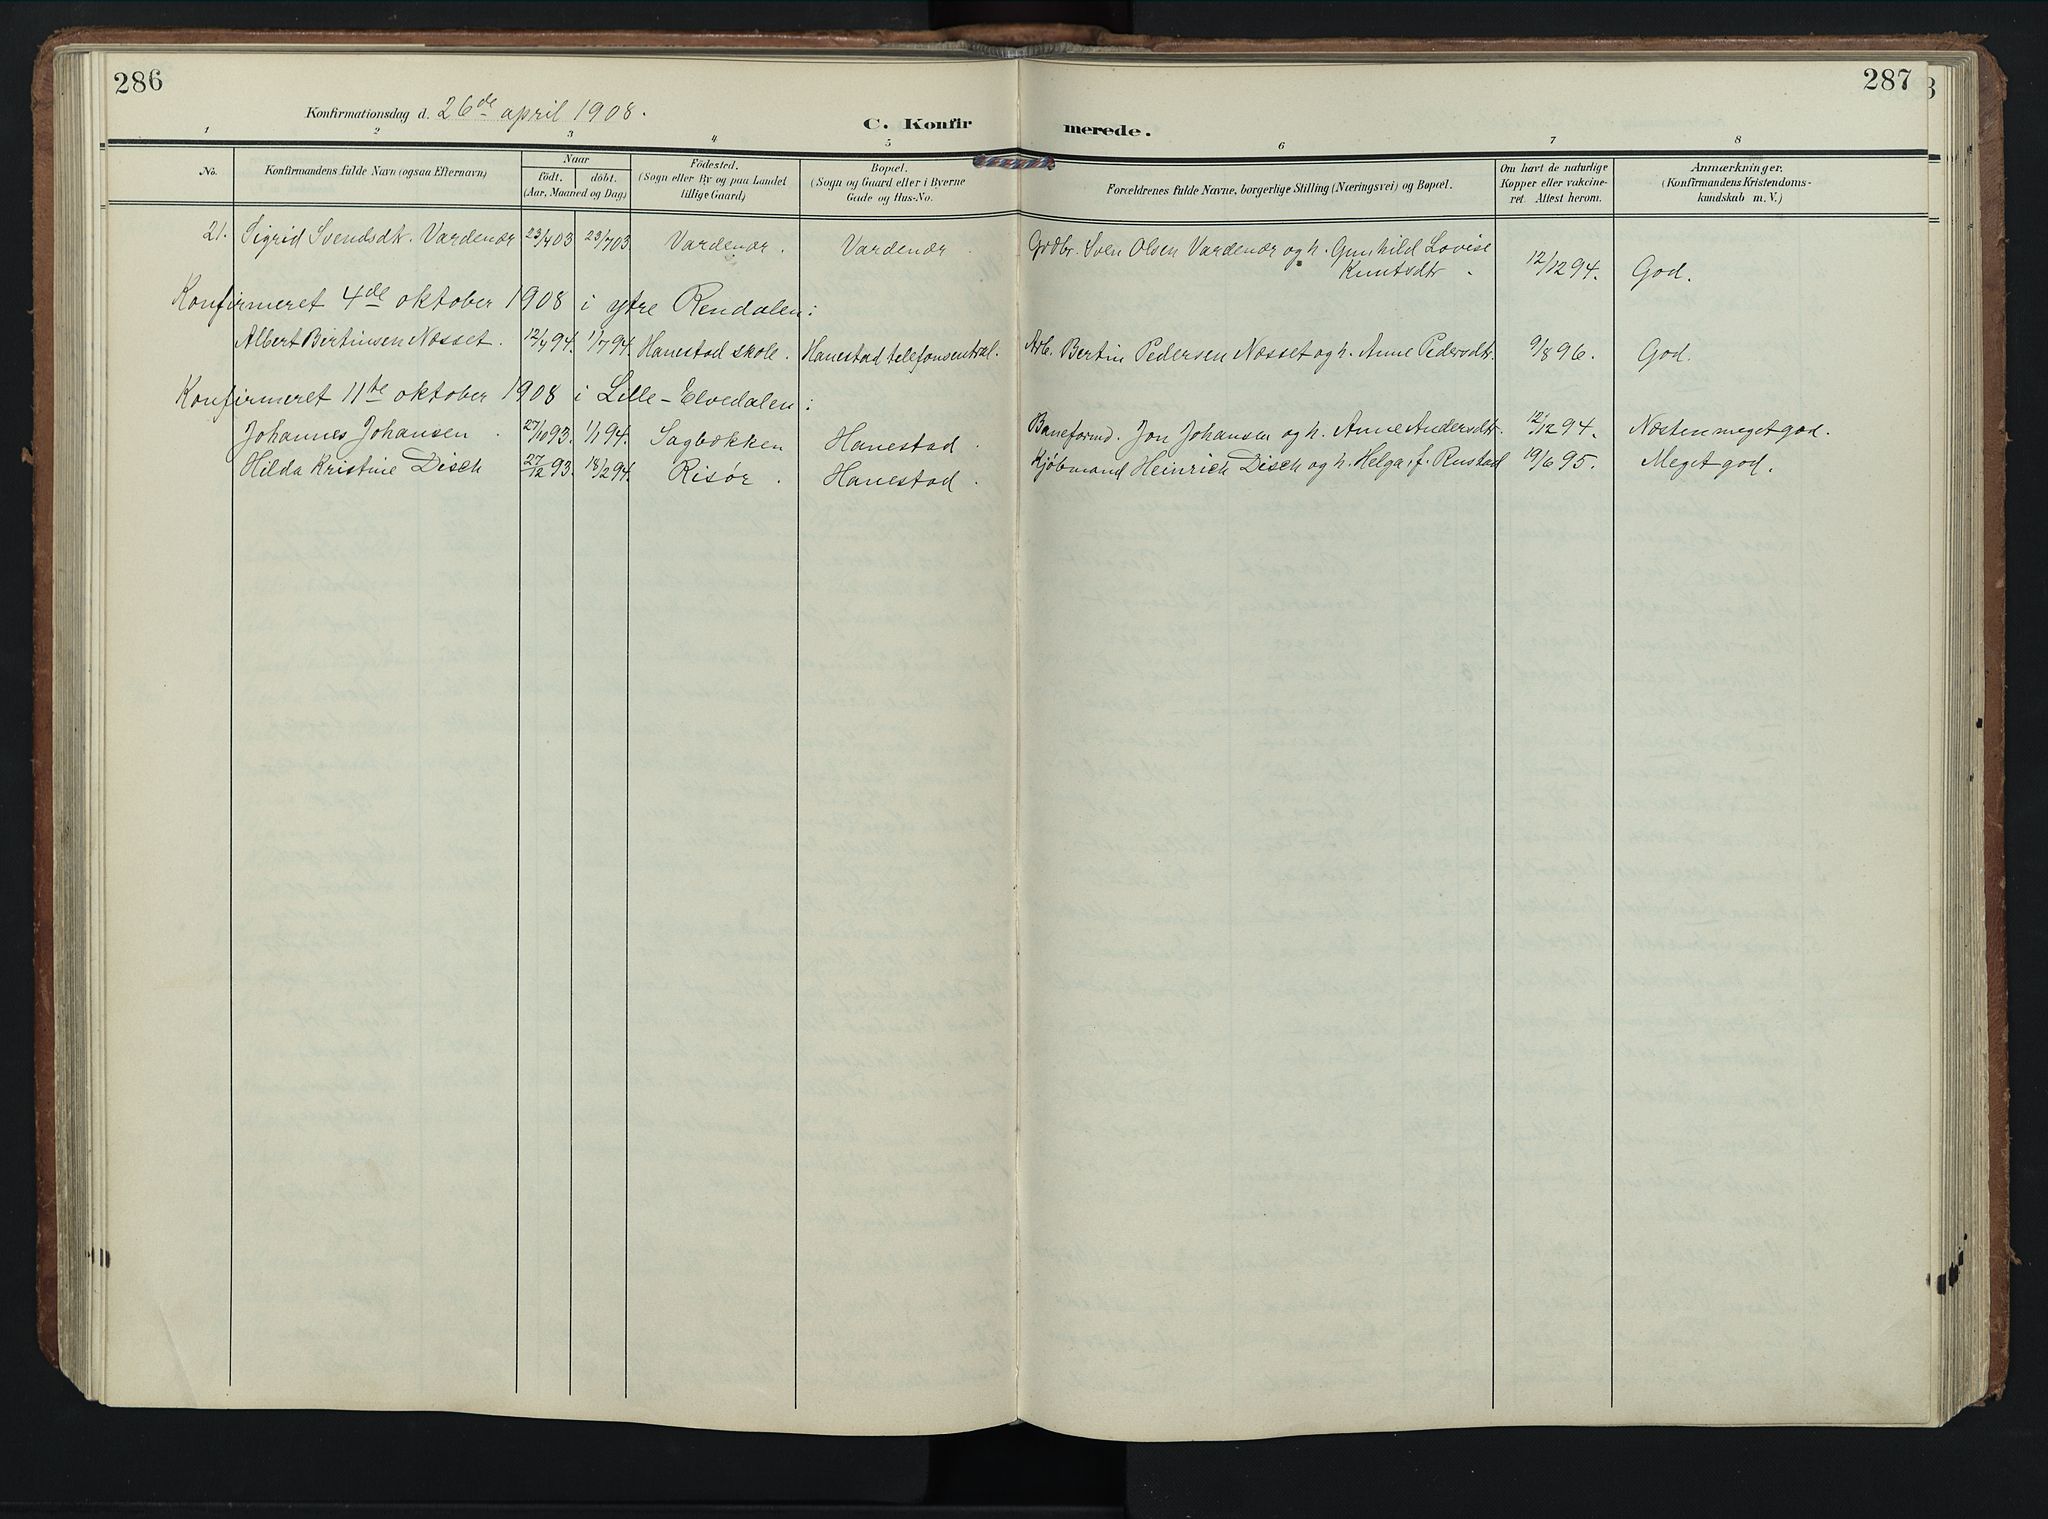 286
287
Konfirmationsdag d. 26de april 1908.
C. Konfirmerede.
1 2 3 4 5 6 7 8
No.
Konfirmandens fulde Navn (ogsaa Efternavn)
Naar
födt. döbt.
(Aar, Maaned og Dag)
Födested.
(Sogn eller By og paa Landet
tillige Gaard)
Bopæl.
(Sogn og Gaard eller i Byerne
Gade og Hus-No.
Forældrenes fulde Navne, borgerlige Stilling (Næringsvei) og Bopæl.
Om havt de naturlige
Kopper eller vakcine-
ret. Attest herom.
Anmærkninger.
(Konfirmandens Kristendoms-
kundskab m. V.)
21. Sigrid Svendsdt. Vardenær 23/4 03 23/7 03 Vardenær. Vardenær. Grdbr. Sven Olsen Vardenær og h. Gunhild Lovise
Knutsdtr. 12/12 94. God.
Konfirmeret 4de oktober 1908 i ytre Rendalen:
Albert Bertinsen Næsset. 12/4 94. 1/7 94. Hanestad skole. Hanestad telefonsentral. Arb. Bertin Pedersen Næsset og h. Anne Pedersdtr. 9/8 96. God.
Konfirmeret 11te oktober 1908 i Lille-Elvedalen:
Johannes Johansen. 27/10 93. 1/1 94. Sagbækken Hanestad Baneformd. Jon Johansen og h. Anne Andersdtr. 12/12 94. Næsten meget god.
Hilda Kristine Disch 27/12 93. 18/2 94. Risør. Hanestad. Kjøbmand Heinrich Disch og h. Helga, f. Rustad 19/6 95. Meget god.